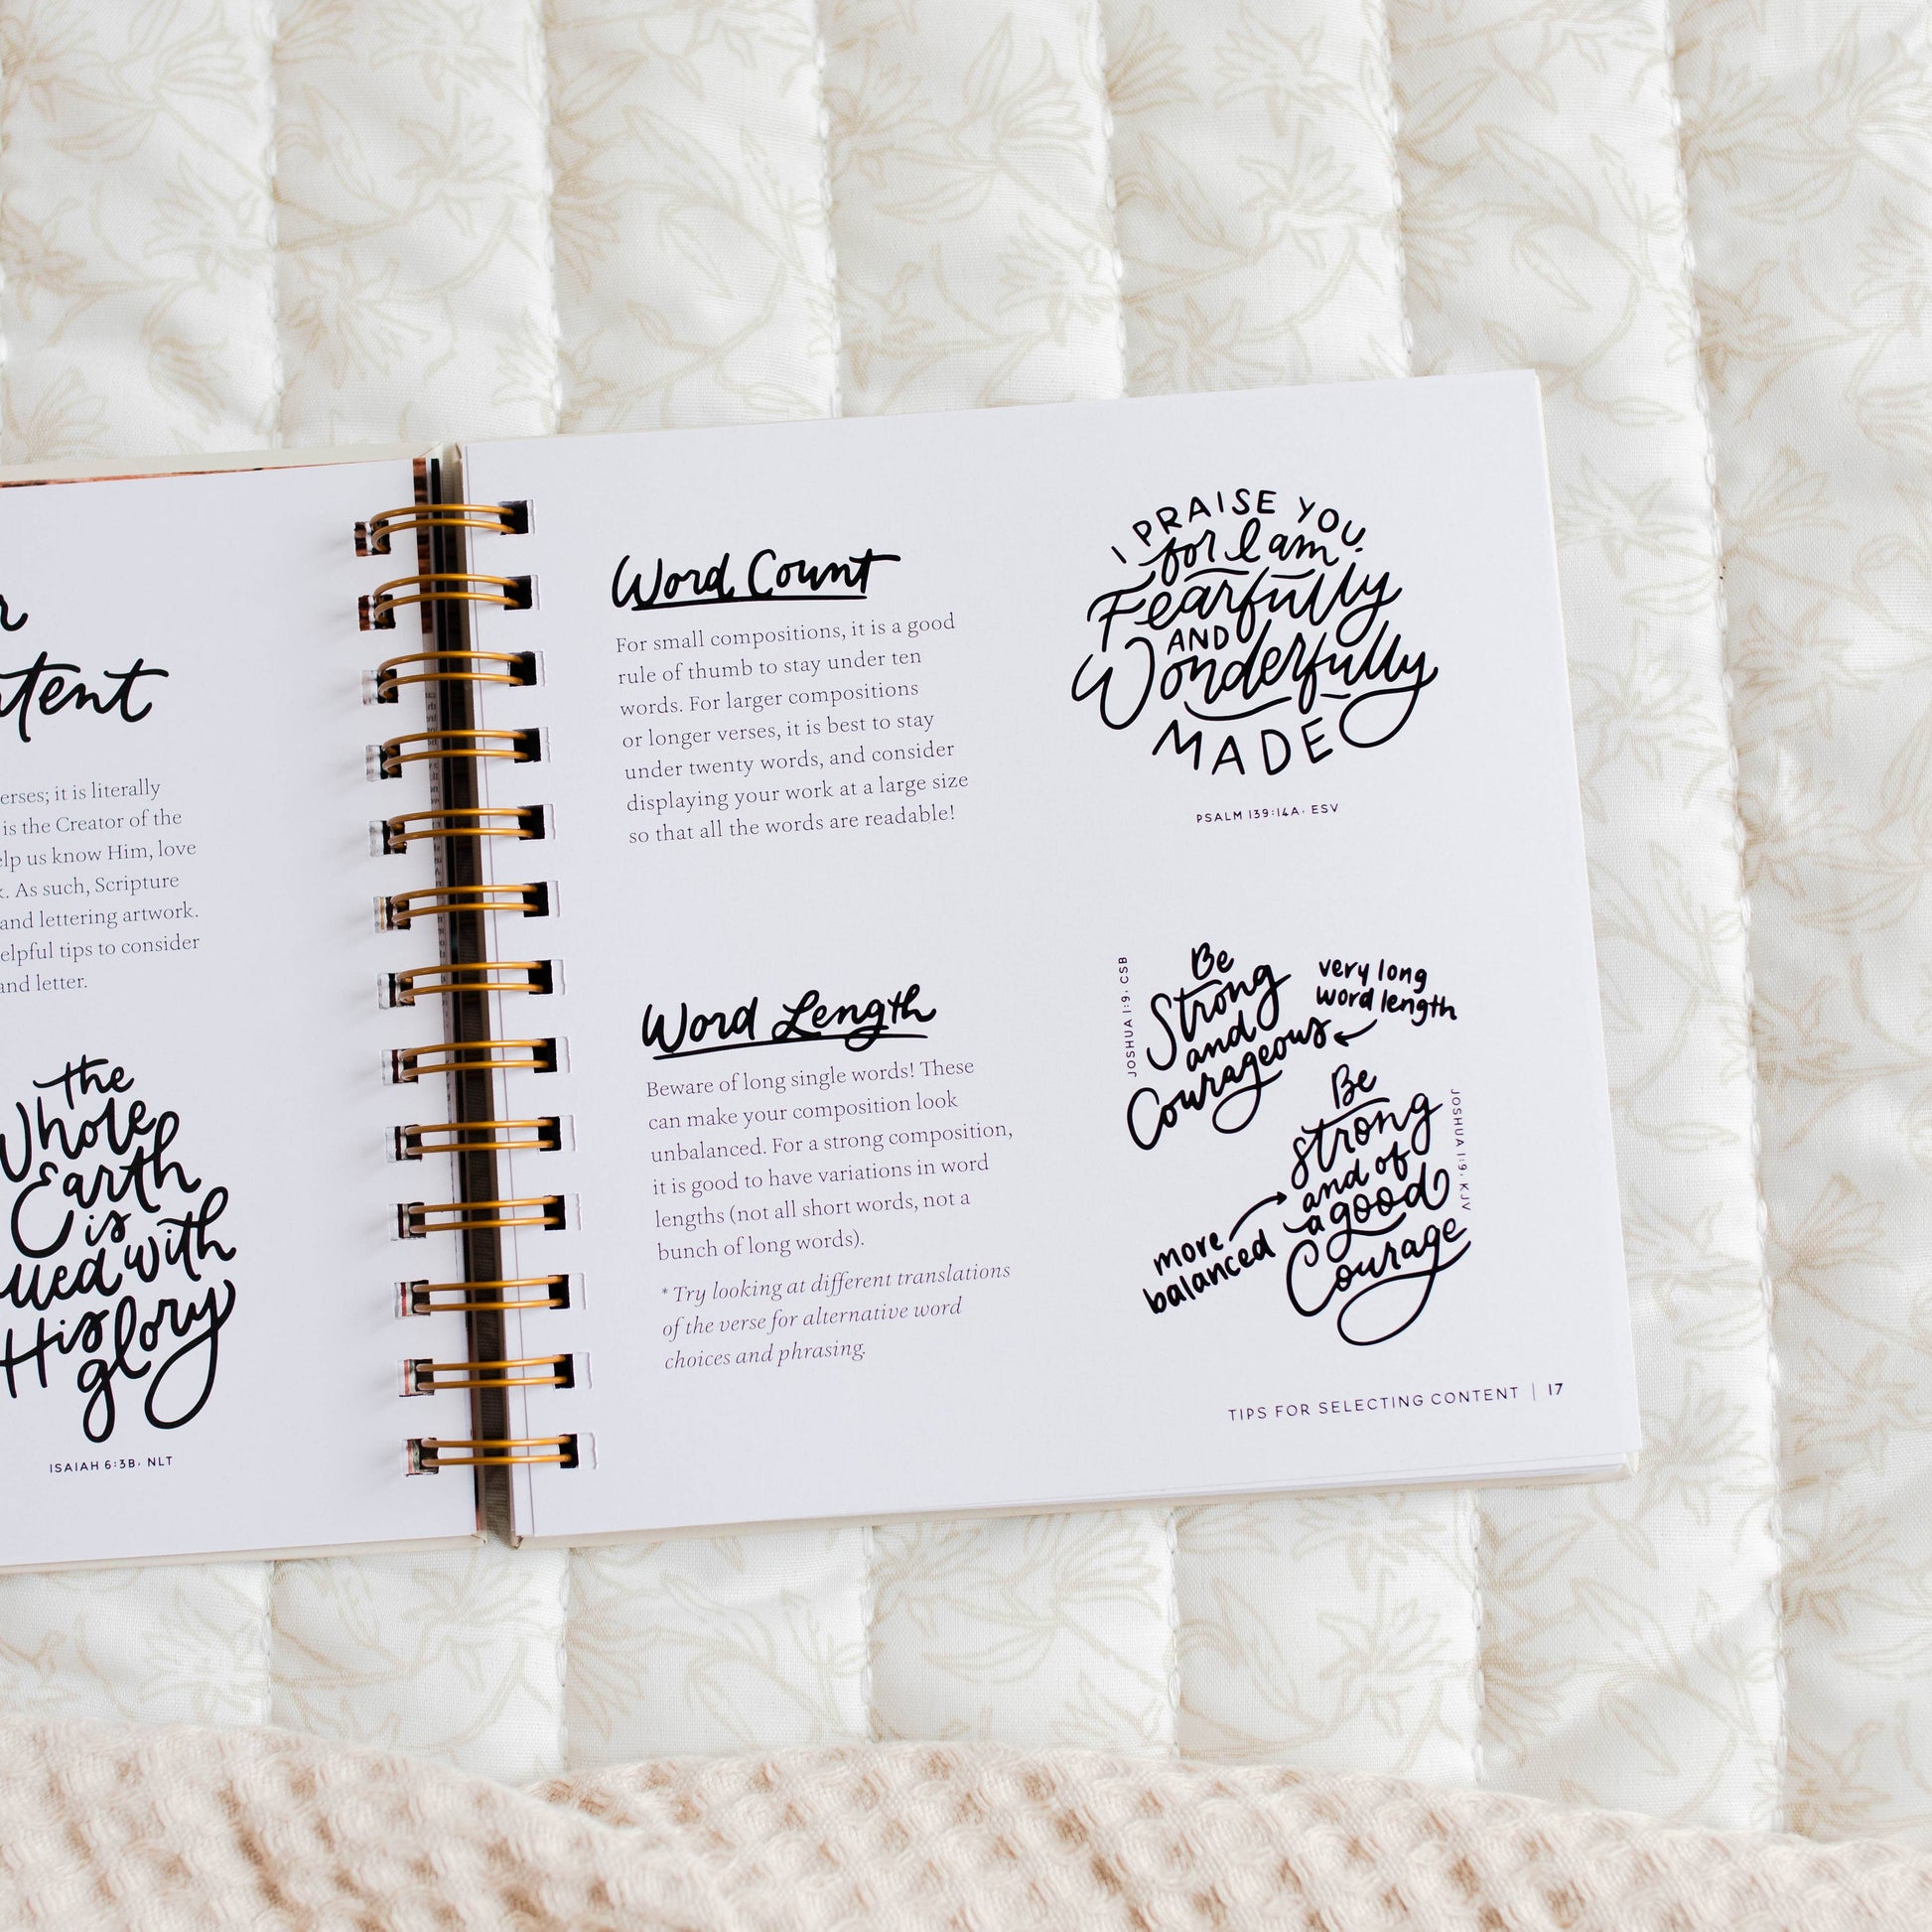 tent
erses; it is literally
is the Creator of the
elp us know Him, love
As such, Scripture
and lettering artwork.
elpful tips to consider
and letter.
the
Whole
Earth
is
with
His
glory
ISAIAH 6:3B, NLT
Word Count
For small compositions, it is a good
rule of thumb to stay under ten
words. For larger compositions
or longer verses, it is best to stay
under twenty words, and consider
displaying your work at a large size
so that all the words are readable!
I PRAISE YOU,
for I am
Fearfully
AND
Wonderfully
MADE
PSALM 139:14A, ESV
Word Length
Beware of long single words! These
can make your composition look
unbalanced. For a strong composition,
it is good to have variations in word
lengths (not all short words, not a
bunch of long words).
* Try looking at different translations
of the verse for alternative word
choices and phrasing.
JOSHUA 1:9, CSB
Be
Strong
and
Courageous
very long
word length
Be
strong
and of
a good
Courage
JOSHUA 1:9, KJV
more
balanced
TIPS FOR SELECTING CONTENT | 17